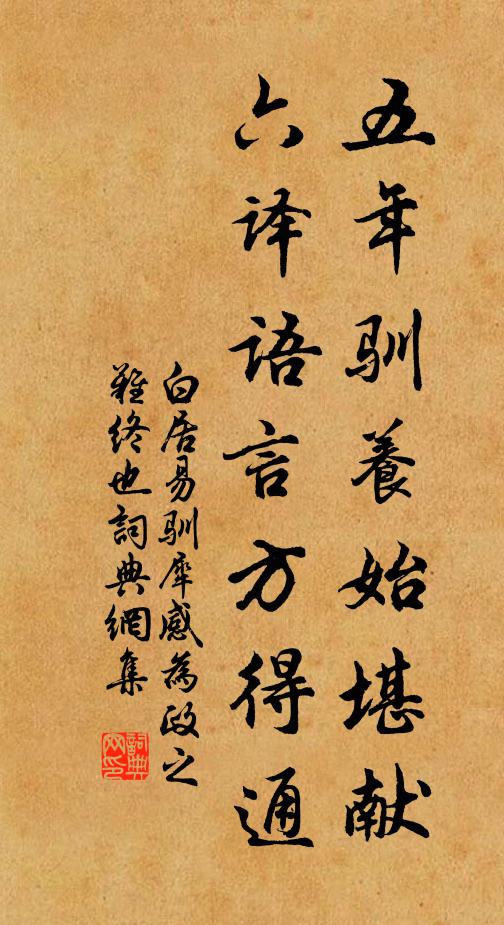 五年驯養始堪献
六译語言方得通
白居易驯犀感為政之
難终也詞典網集
詞典网印